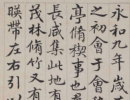 永和九年歲
之初會于會
亭脩禊事也
長咸集此地
茂林脩竹又
暎帶左右引